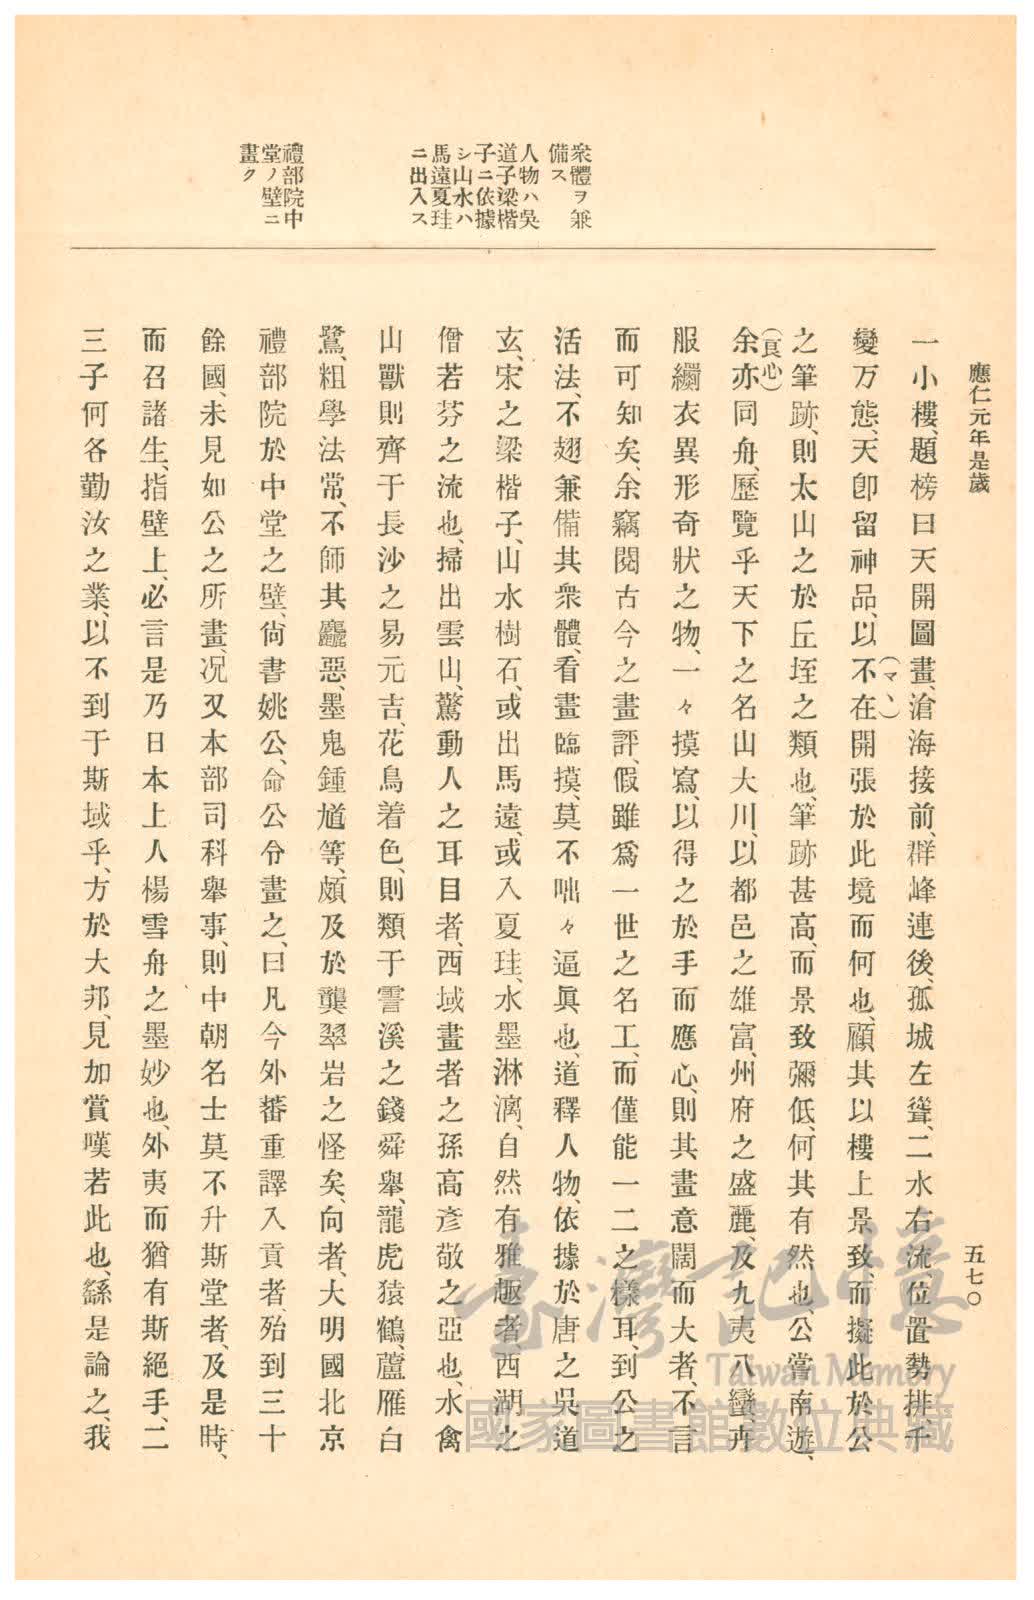 應仁元年是歲
五七〇
衆體ヲ兼
備ス
人物ハ吳
道子梁楷
子ニ依據
シ山水ハ
馬遠夏珪
ニ出入ス
禮部院中
堂ノ壁ニ
畫ク
一小樓、題榜曰天開圖畫、滄海接前、群峰連後、孤城左聳、二水右流、位置勢排、千
變万態、天卽留神品、以不(マヽ)在開張於此境而何也、顧其以樓上景致、而擬此於公
之筆跡、則太山之於丘垤之類也、筆跡甚高、而景致彌低、何其有然也、公嘗南遊、
余(良心)亦同舟、歷覽乎天下之名山大川、以都邑之雄富、州府之盛麗、及九夷八蠻、卉
服纈衣異形奇狀之物、一々摸寫、以得之於手而應心、則其畫意闊而大者、不言
而可知矣、余竊閱古今之畫評、假雖爲一世之名工、而僅能一二之樣耳、到公之
活法、不翅兼備其衆體、看畫臨摸、莫不咄々逼眞也、道釋人物、依據於唐之吳道
玄、宋之梁楷子、山水樹石、或出馬遠、或入夏珪、水墨淋漓、自然有雅趣者、西湖之
僧若芬之流也、掃出雲山、驚動人之耳目者、西域畫者之孫高彥敬之亞也、水禽
山獸則齊于長沙之易元吉、花鳥着色、則類于霅溪之錢舜舉、龍虎猿鶴、蘆雁白
鷺、粗學法常、不師其麤惡、墨鬼鍾馗等、頗及於龔翠岩之怪矣、向者、大明國北京
禮部院於中堂之壁、尙書姚公、命公令畫之、曰凡今外蕃重譯入貢者、殆到三十
餘國、未見如公之所畫、况又本部司科舉事、則中朝名士莫不升斯堂者、及是時、
而召諸生、指壁上、必言是乃日本上人楊雪舟之墨妙也、外夷而猶有斯絕手、二
三子何各勤汝之業、以不到于斯域乎、方於大邦、見加賞嘆若此也、繇是論之、我
臺灣記憶
Taiwan Memory
國家圖書館數位典藏